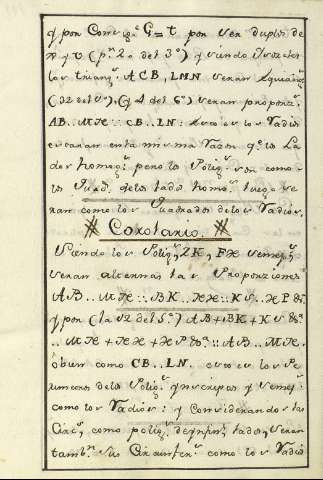 y por Consig.te G=t por ser duplos de
x y v (p.r 2.o del 3.o) y siendo Ysosceles
los triang.s ACB, LMN seran Equiang.s
(32 del 1.o), (y 4 del 6.o) seran proporz.s
AB..MN::CB..LN: los Radios
estaran en la misma Razon q.e los La
dos homog.s pero los Polig.s son como
los Quad. de los lados homo.s luego se
ran como los Quadrados de los Radios.
Corolario.
Siendo los Polig.s ZK, FX semej.s
seran alternas las Proporziones
AB..MN::BK..NX::KS..XP &.a
y por (la 12 del 5.o) AB+BK+KS &.a
..MN+NX+XP &.a::AB..MN.
ó bien como CB..LN. esto es los Pe
rimetros de los Polig.s ynscriptos y semej.s
como los Radios: y Considerando los
Circ.s como polig.s de ynfin.s lados, seran
tamb.n sus Circunfer.s como los Radios